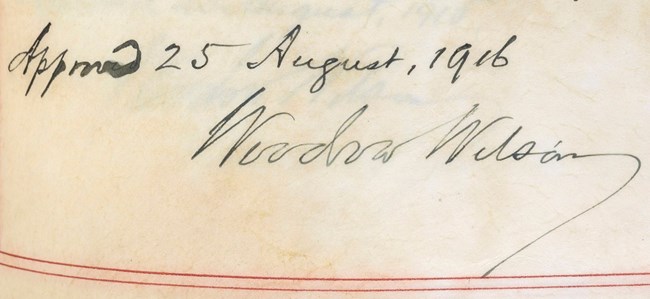 Approved 25 August, 1916
Woodrow Wilson